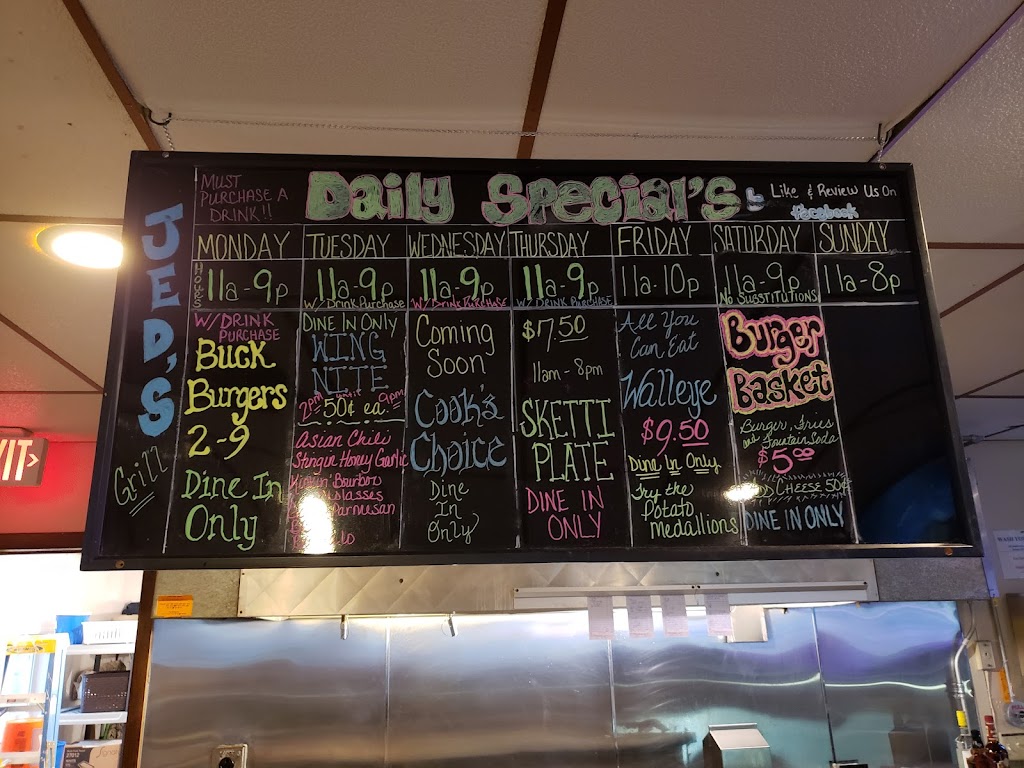 MUST
PURCHASE A
DRINK!!
Daily Special's
Like & Review Us On
facebook
JED'S
Grill
HOURS
MONDAY
11a-9p
W/DRINK
PURCHASE
BUCK
Burgers
2-9
Dine In
Only
TUESDAY
11a-9p
W/ Drink Purchase
DINE IN ONLY
WING
NITE
2pm until 9pm
50¢ ea.
Asian Chili
Stingin Honey Garlic
Kickin' Bourbon
Molasses
Parmesan
WEDNESDAY
11a-9p
W/ DRINK PURCHASE
Coming
Soon
Cook's
Choice
Dine
In
Only
THURSDAY
11a-9p
W/ DRINK PURCHASE
$7.50
11am-8pm
SKETTI
PLATE
DINE IN
ONLY
FRIDAY
11a-10p
All You
Can Eat
Walleye
$9.50
Dine In Only
Try the
Potato
Medallions
SATURDAY
11a-9p
NO SUBSTITUTIONS
Burger
Basket
Burger, Fries
and Fountain Soda
$5.00
ADD CHEESE 50¢
DINE IN ONLY
SUNDAY
11a-8p
XIT